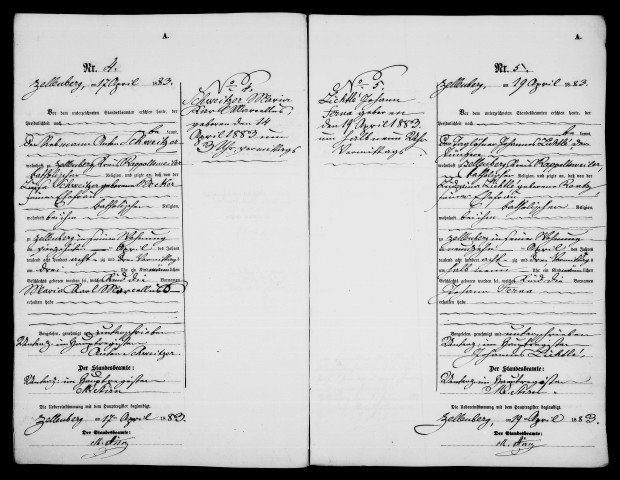 A.
Nr. 4.
Zellenberg, am 17 April 1883.
Vor dem unterzeichneten Standesbeamten erschien heute, der
Persönlichkeit nach
be kannt,
den Rebmann Anton Schweitzer
wohnhaft zu Zellenberg Kreis Rappoltsweiler
katholischer Religion, und zeigte an, daß von der
Schweitzer geborene Becker
seiner Ehefrau
katholischer Religion,
wohnhaft bei ihm
zu Zellenberg in seiner Wohnung
am vierzehnten April des Jahres
tausend acht hundert achtzig und drei Vormittags
um drei Uhr ein Kind männlichen
Geschlechts geboren worden sei, welches Kind die Vornamen
Maria Karl Marcellus
erhalten habe
Vorgelesen, genehmigt und unterschrieben
Unterz: im Hauptregister
Anton Schweitzer.
Der Standesbeamte:
Unterz: im Hauptregister
Die Uebereinstimmung mit dem Hauptregister beglaubigt.
Zellenberg, am 17 April 1883.
Der Standesbeamte:
No 4.
Schweitzer Maria
Karl Marcellus,
geboren den 14
April 1883 um
3 Uhr vormittags
No 5.
Lichtlé Johann
geboren
den 19 April 1883
um halb neun Uhr
Vormittags
A.
Nr. 5.
Zellenberg, am 19 April 1883.
Vor dem unterzeichneten Standesbeamten erschien heute, der
Persönlichkeit nach
be kannt,
der Taglöhner Johannes Lichtlé
wohnhaft zu Zellenberg Kreis Rappoltsweiler
katholischer Religion, und zeigte an, daß von der
Lichtlé geborene
seiner Ehefrau
katholischer Religion,
wohnhaft bei ihm
zu Zellenberg in seiner Wohnung
am neunzehnten April des Jahres
tausend acht hundert achtzig und drei Vormittags
um halb neun Uhr ein Kind
Geschlechts geboren worden sei, welches Kind die Vornamen
Johann
erhalten habe
Vorgelesen, genehmigt und unterschrieben
Unterz: im Hauptregister
Johannes Lichtlé.
Der Standesbeamte:
Unterz: im Hauptregister
Die Uebereinstimmung mit dem Hauptregister beglaubigt.
Zellenberg, am 19 April 1883.
Der Standesbeamte: